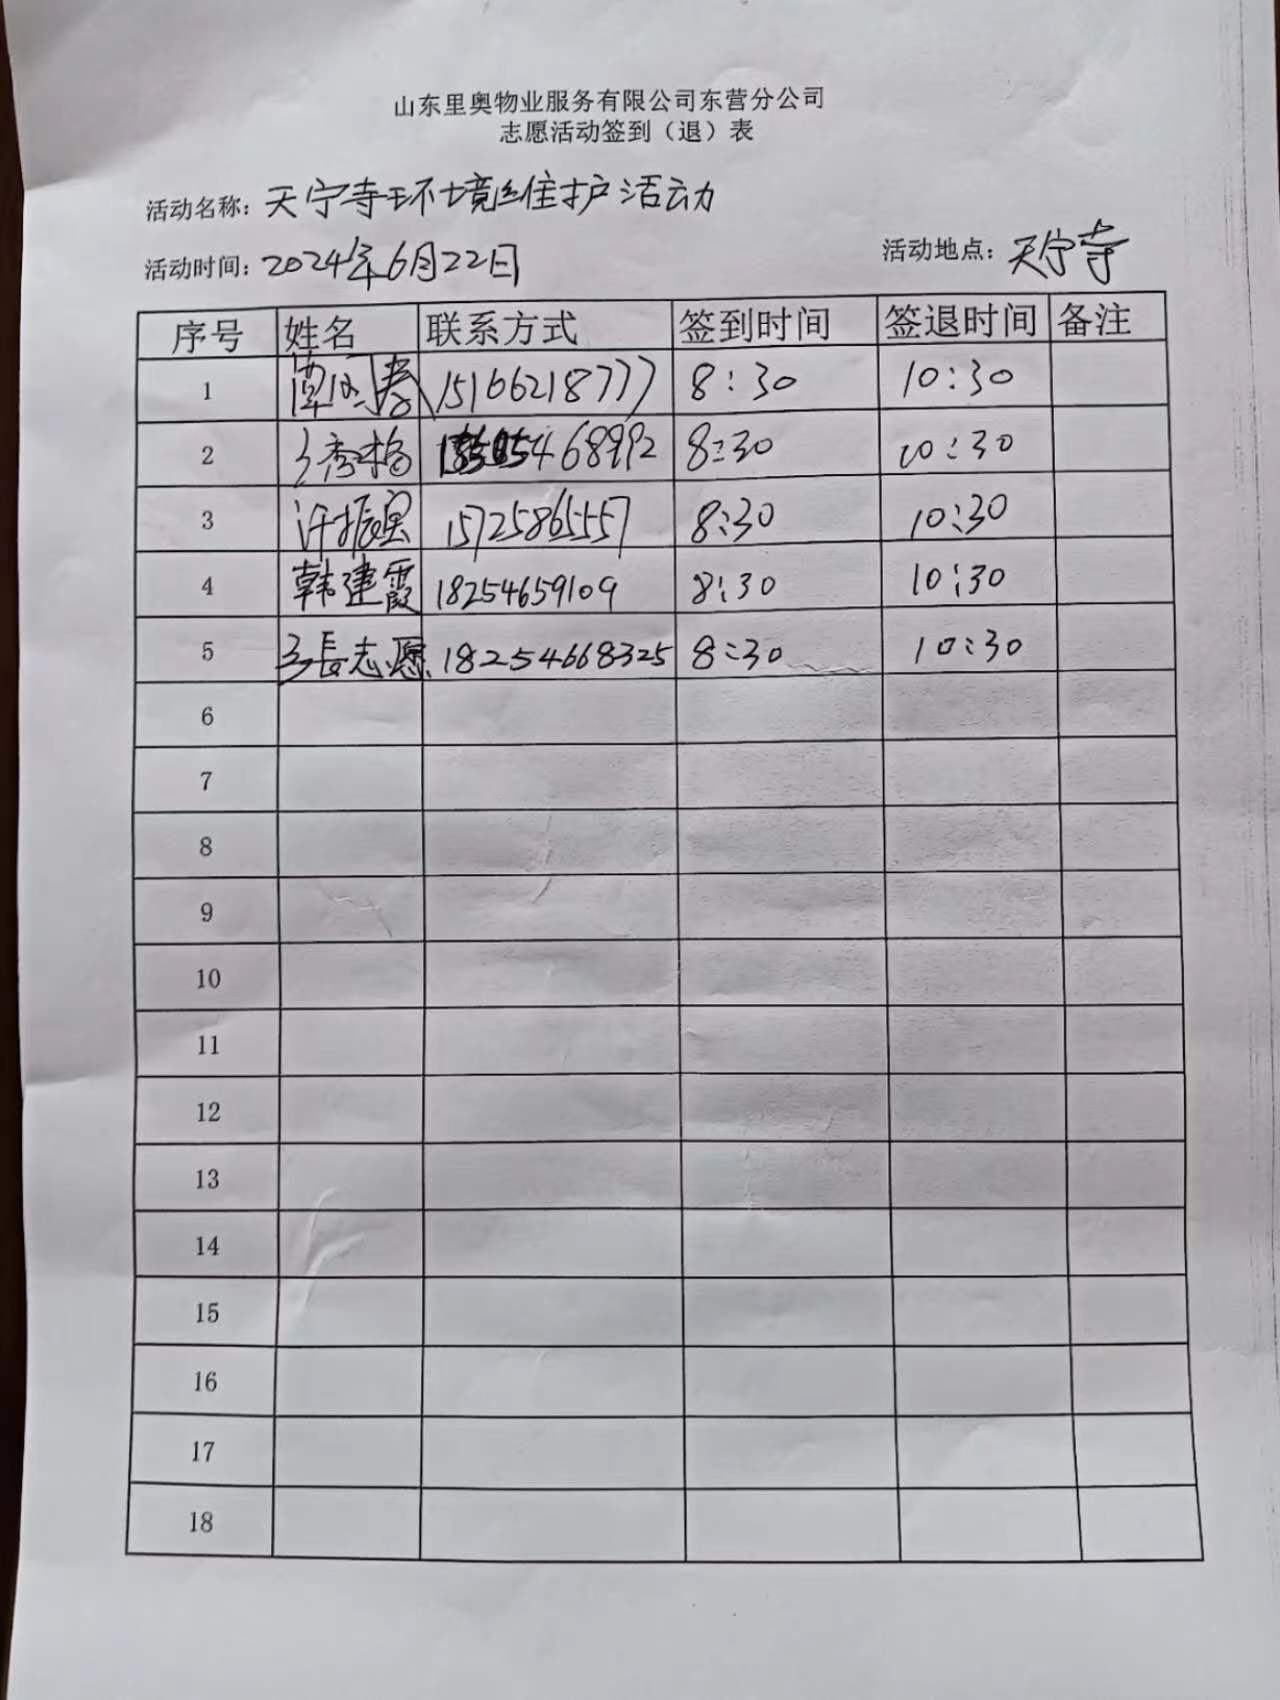 山东里奥物业服务有限公司东营分公司
志愿活动签到（退）表
活动名称：天宁寺环境维护活动
活动时间：2024年6月22日 活动地点：天宁寺
序号 姓名 联系方式 签到时间 签退时间 备注
1 15166218777 8:30 10:30
2 秀梅 468992 8:30 10:30
3 许振 15725865557 8:30 10:30
4 韩建霞 18254659109 8:30 10:30
5 張志愿 18254668325 8:30 10:30
6
7
8
9
10
11
12
13
14
15
16
17
18